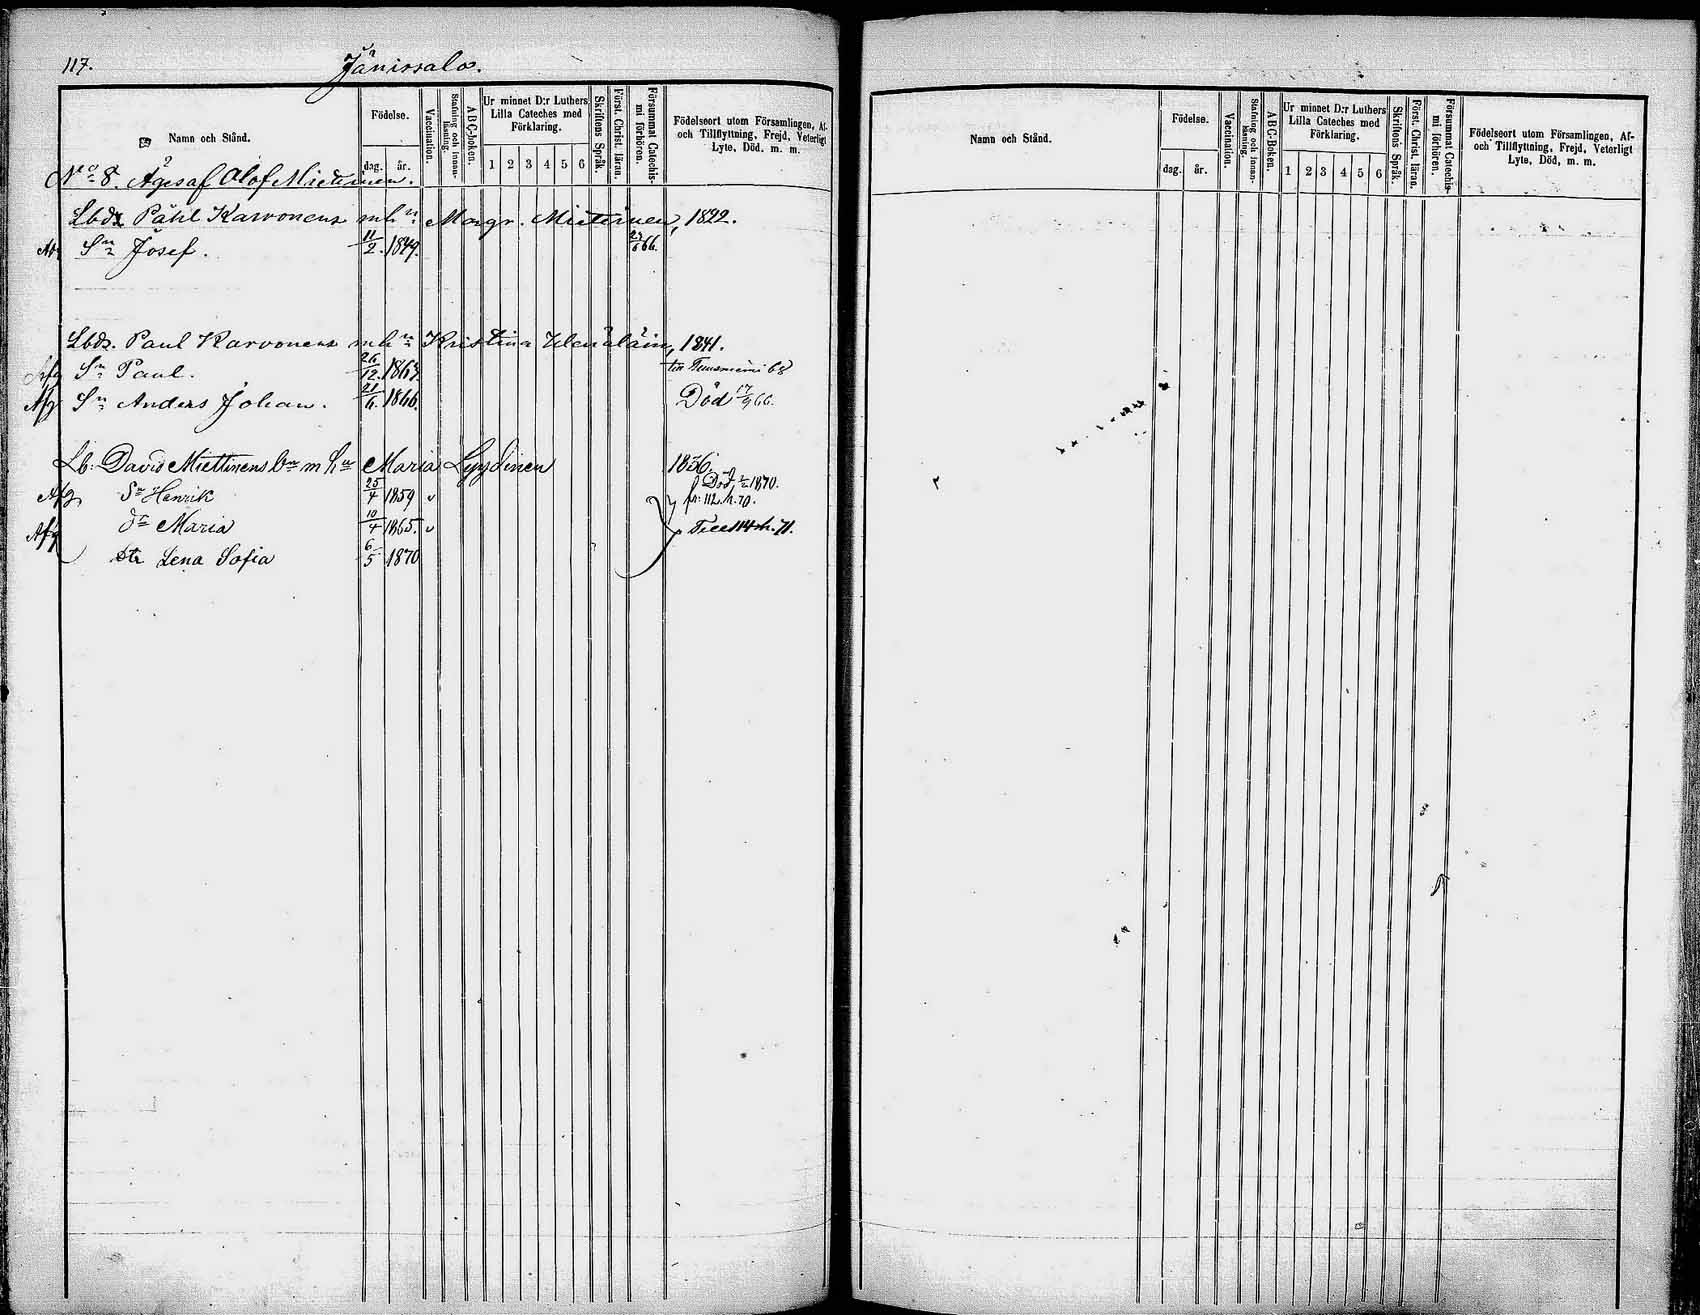 117.
Jänissalo.
Namn och Stånd.
Födelse.
dag. år.
Vaccination.
Stafning och innan-läsning.
A B C-Boken.
Ur minnet D:r Luthers Lilla Cateches med Förklaring.
1 2 3 4 5 6
Skriftens Språk.
Först. Christ. läran.
Försummat Catechis-mi förhören.
Födelseort utom Församlingen, Af-
och Tillflyttning, Frejd, Veterligt
Lyte, Död. m. m.
No 8. Äges af Olof Miettinen.
Lbds Påhl Karvonens m h:u Margr. Miettinen, 1822.
Sn Josef. 11/2. 1849. 66.
Lbds. Paul Karvonens m h Kristina, 1841.
Sn Paul. 26/12. till Tuusniemi 68
Afg Sn Anders Johan. 21/6. 1866. Död 17/9 66.
Lb: David Miettinens m h Maria Lyydinen 1836.
Död 1870.
Afg Sn Henrik 25/4 1859 v fr: 112. h. 70.
Afg dr Maria 10/4 1865. v Till 114 h. 71.
dtr Lena Sofia 6/5 1870
Namn och Stånd.
Födelse.
dag. år.
Vaccination.
Stafning och innan-läsning.
A B C-Boken.
Ur minnet D:r Luthers Lilla Cateches med Förklaring.
1 2 3 4 5 6
Skriftens Språk.
Först. Christ. läran.
Försummat Catechis-mi förhören.
Födelseort utom Församlingen, Af-
och Tillflyttning, Frejd, Veterligt
Lyte, Död, m. m.